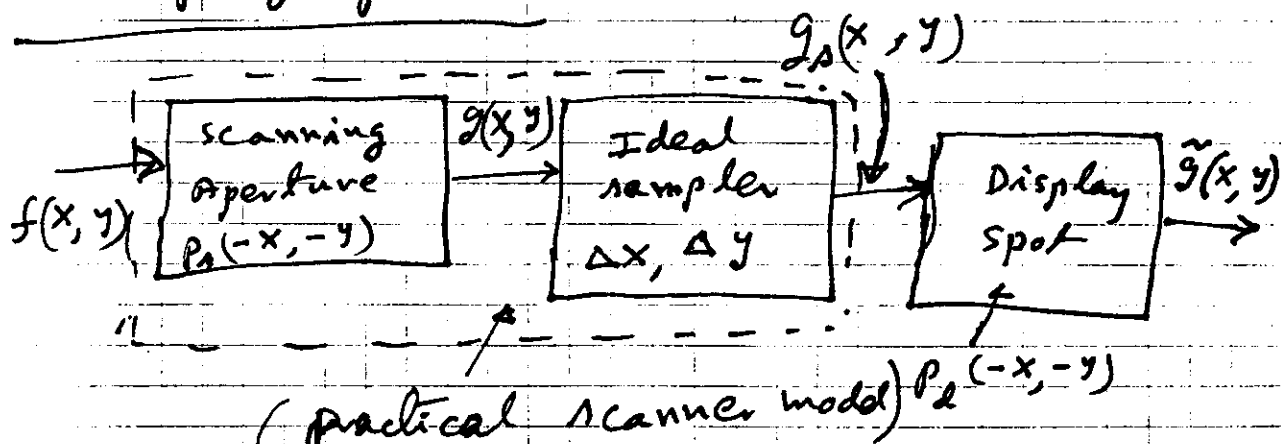 g_s(x, y)
scanning
Aperture
p_s(-x, -y)
f(x, y)
g(x, y)
Ideal
sampler
Δx, Δy
Display
spot
g̃(x, y)
(practical scanner model)
p_d(-x, -y)